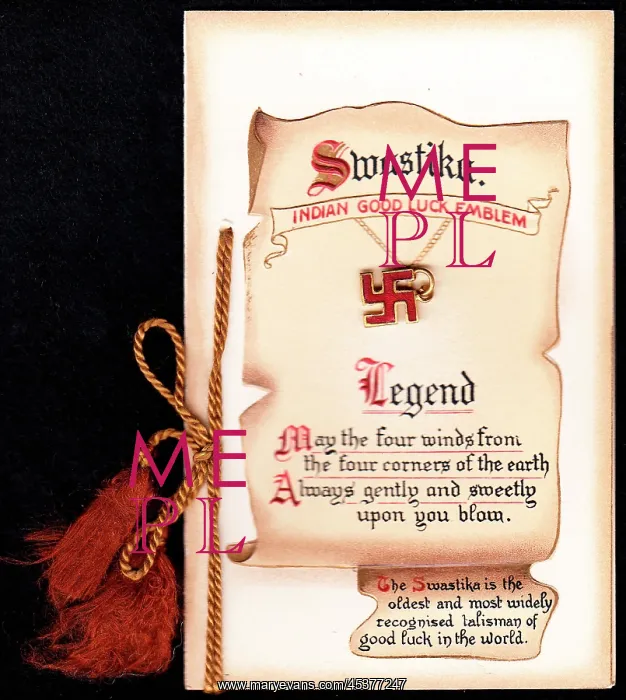 Swastika.
INDIAN GOOD LUCK EMBLEM
Legend
May the four winds from
the four corners of the earth
Always gently and sweetly
upon you blow.
The Swastika is the
oldest and most widely
recognised talisman of
good luck in the world.
ME
PL
ME
PL
www.maryevans.com/45377247